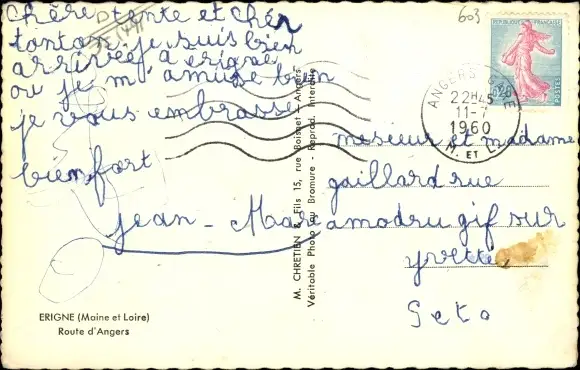 chère tente et chér
tonton je suis bien
arrivée a erigne
ou je m'amuse bien
je vous embrasse
bien fort
jean-Marc
ERIGNE (Maine et Loire)
Route d'Angers
M. CHRETIEN & Fils 15, rue Boisnet - Angers
Véritable Photo au Bromure - Reprod. Interdite
603
REPUBLIQUE FRANÇAISE
0,20
POSTES
ANGERS GARE
22H45
11-7
1960
M. ET L.
mesieur et madame
gaillard rue
amodru gif sur
yvette
S et o